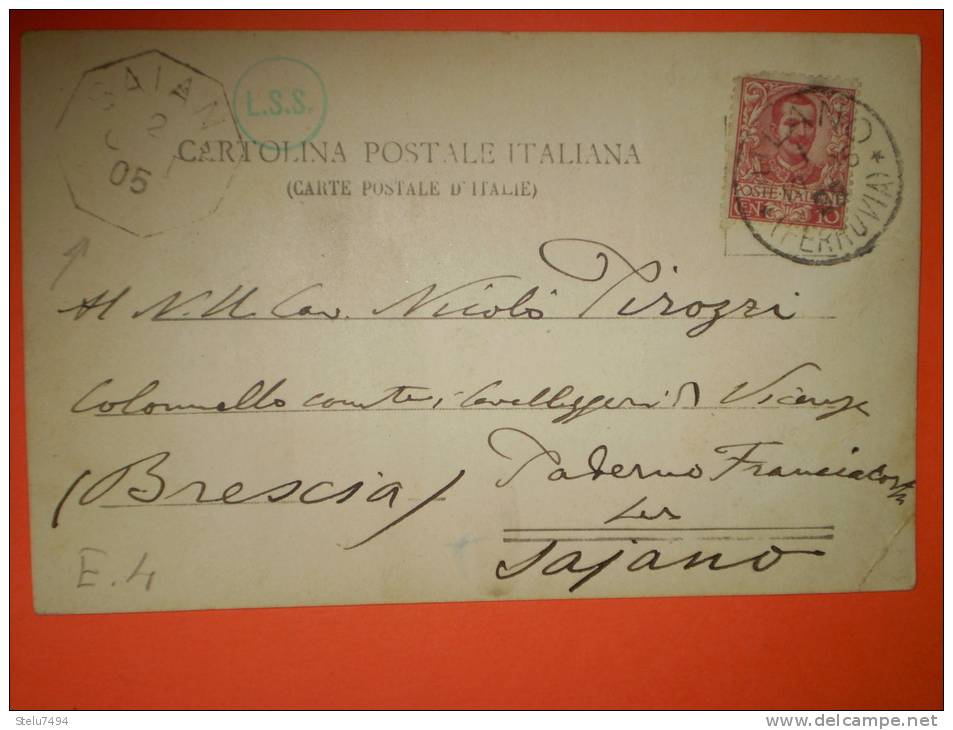 SAIAN
2
05
L.S.S.
CARTOLINA POSTALE ITALIANA
(CARTE POSTALE D'ITALIE)
POSTE ITALIANE
10
MILANO
(FERROVIA)
Al N. U. Cav. Nicolò Pirozzi
Colonnello comte Cavalleggeri Vicenza
(Brescia) Paderno Franciacorta
per
Sajano
E. 4
Stelu7494
www.delcampe.net